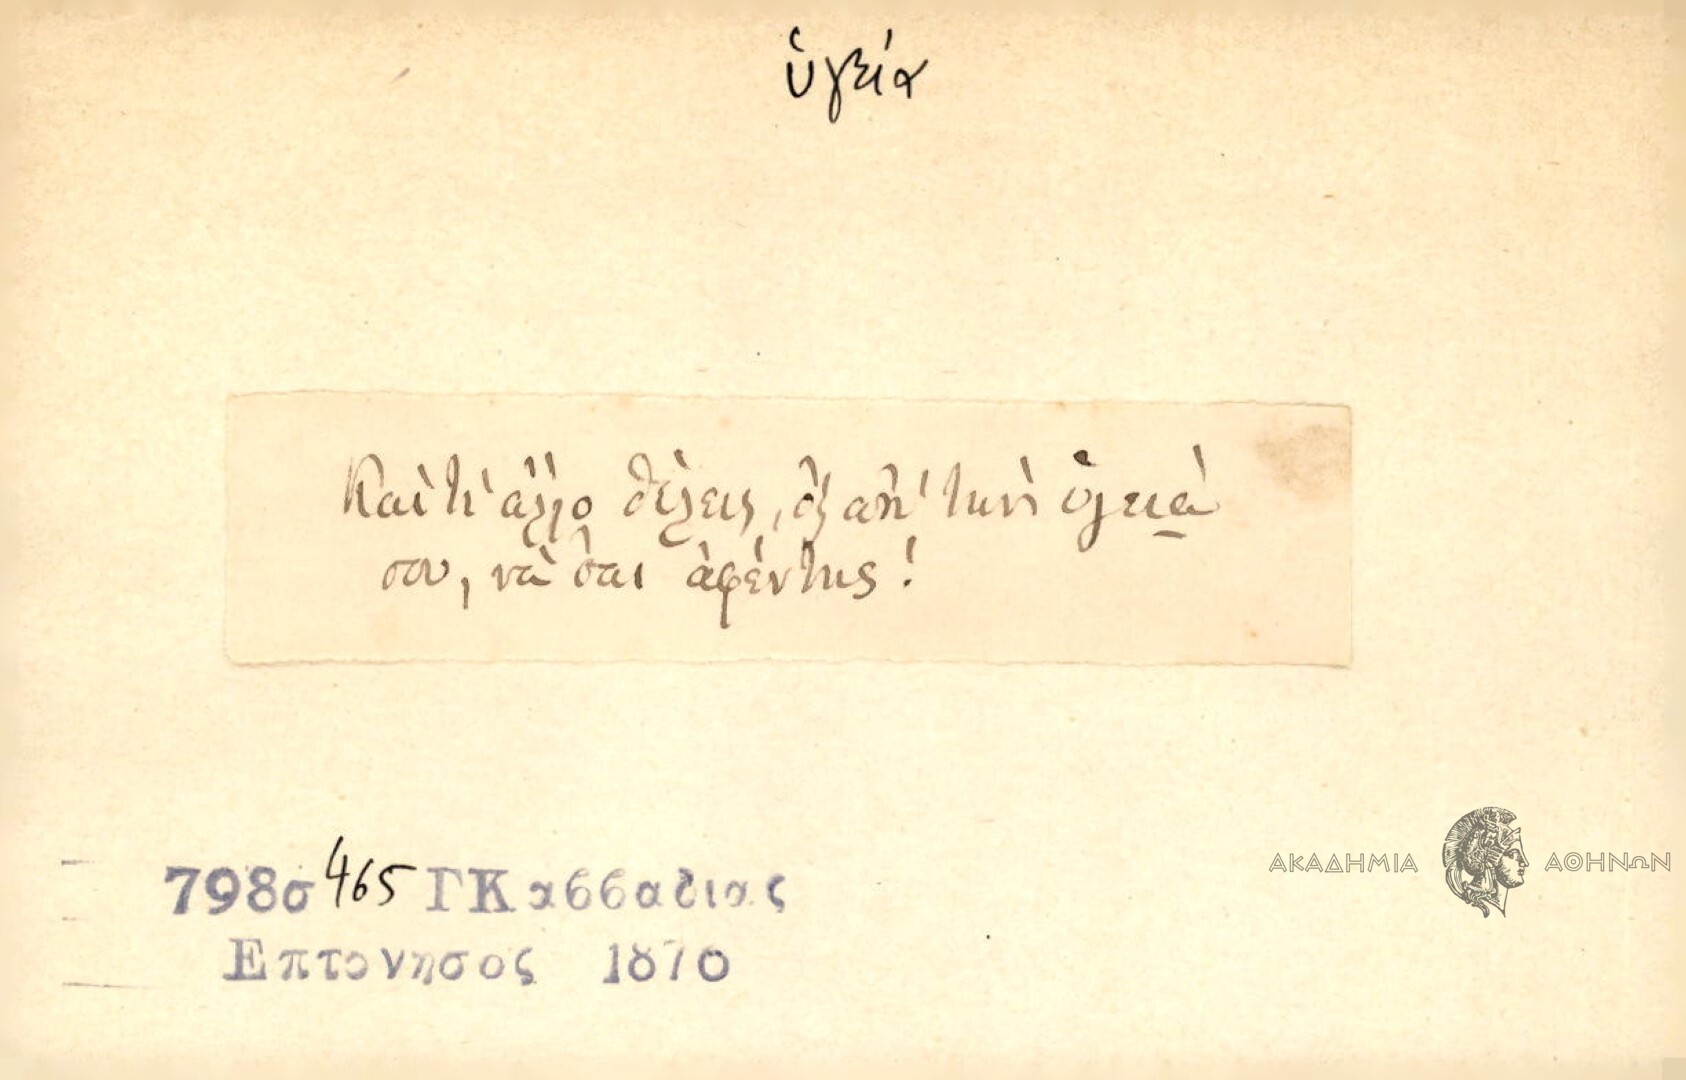 ὑγεία
Καὶ τί ἄλλο θέλεις, ὄξ ἀπ' τὴν ὑγειά
σου, νὰ σαι ἀφέντης!
798σ 465 ΓΚαββαδιας
Επτονησος 1870
ΑΚΑΔΗΜΙΑ ΑΘΗΝΩΝ